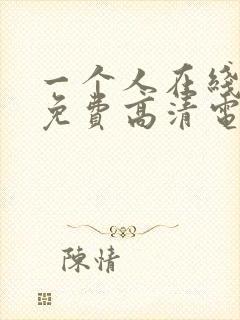 一个人在线
免费高清电
陳情